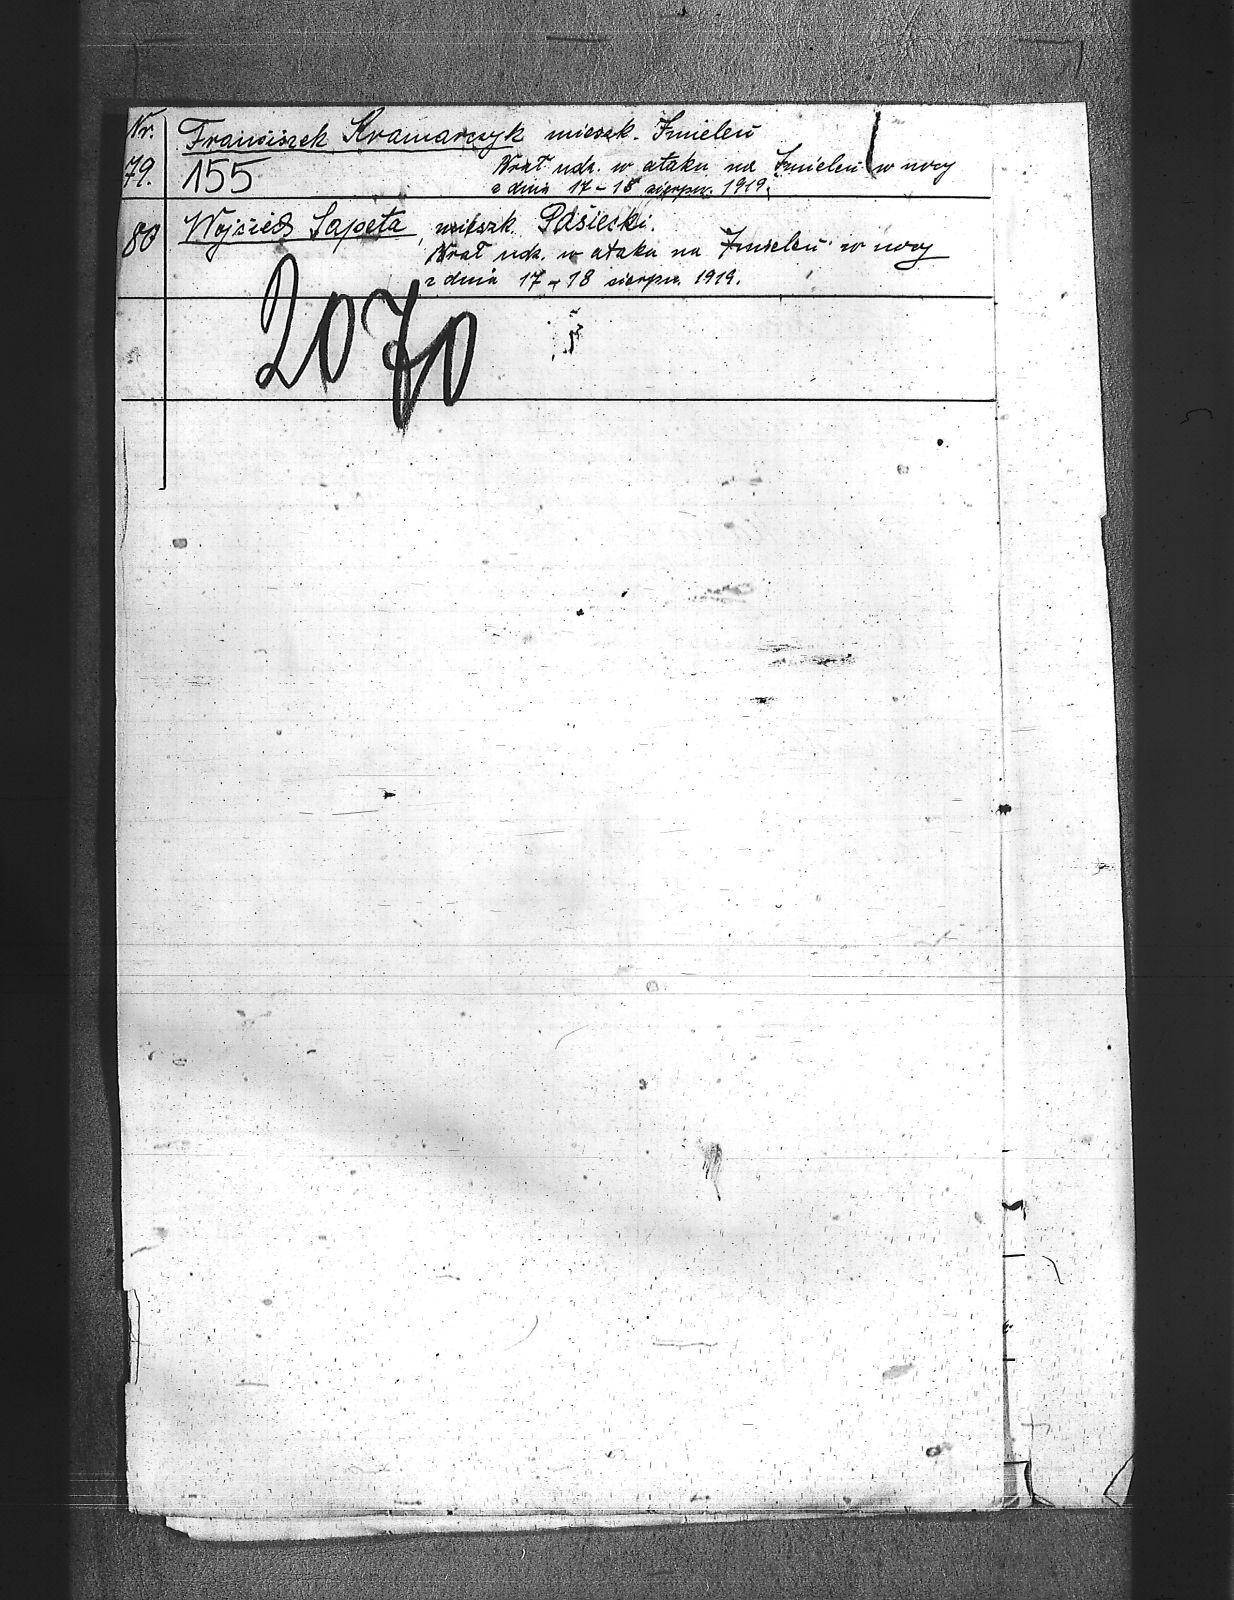 Nr.
Franciszek Kramarczyk mieszk. Imieleń
79. 155 Brał udz. w ataku na Imieleń w nocy
z dnia 17-18 sierpn. 1919.
80 Wojciech Sapeta, mieszk. Pasiecki.
Brał udz. w ataku na Imieleń w nocy
z dnia 17-18 sierpn. 1919.
2070